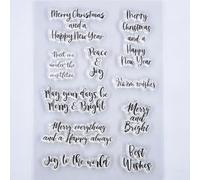 Merry Christmas
and a
Happy New Year
Merry
Christmas
and a
Happy
New Year
Meet me
under the
mistletoe
Peace
&
Joy
Warm wishes
May your days be
Merry & Bright
Merry
and
Bright
Merry everything
and a Happy always
Joy to the world
Best
Wishes